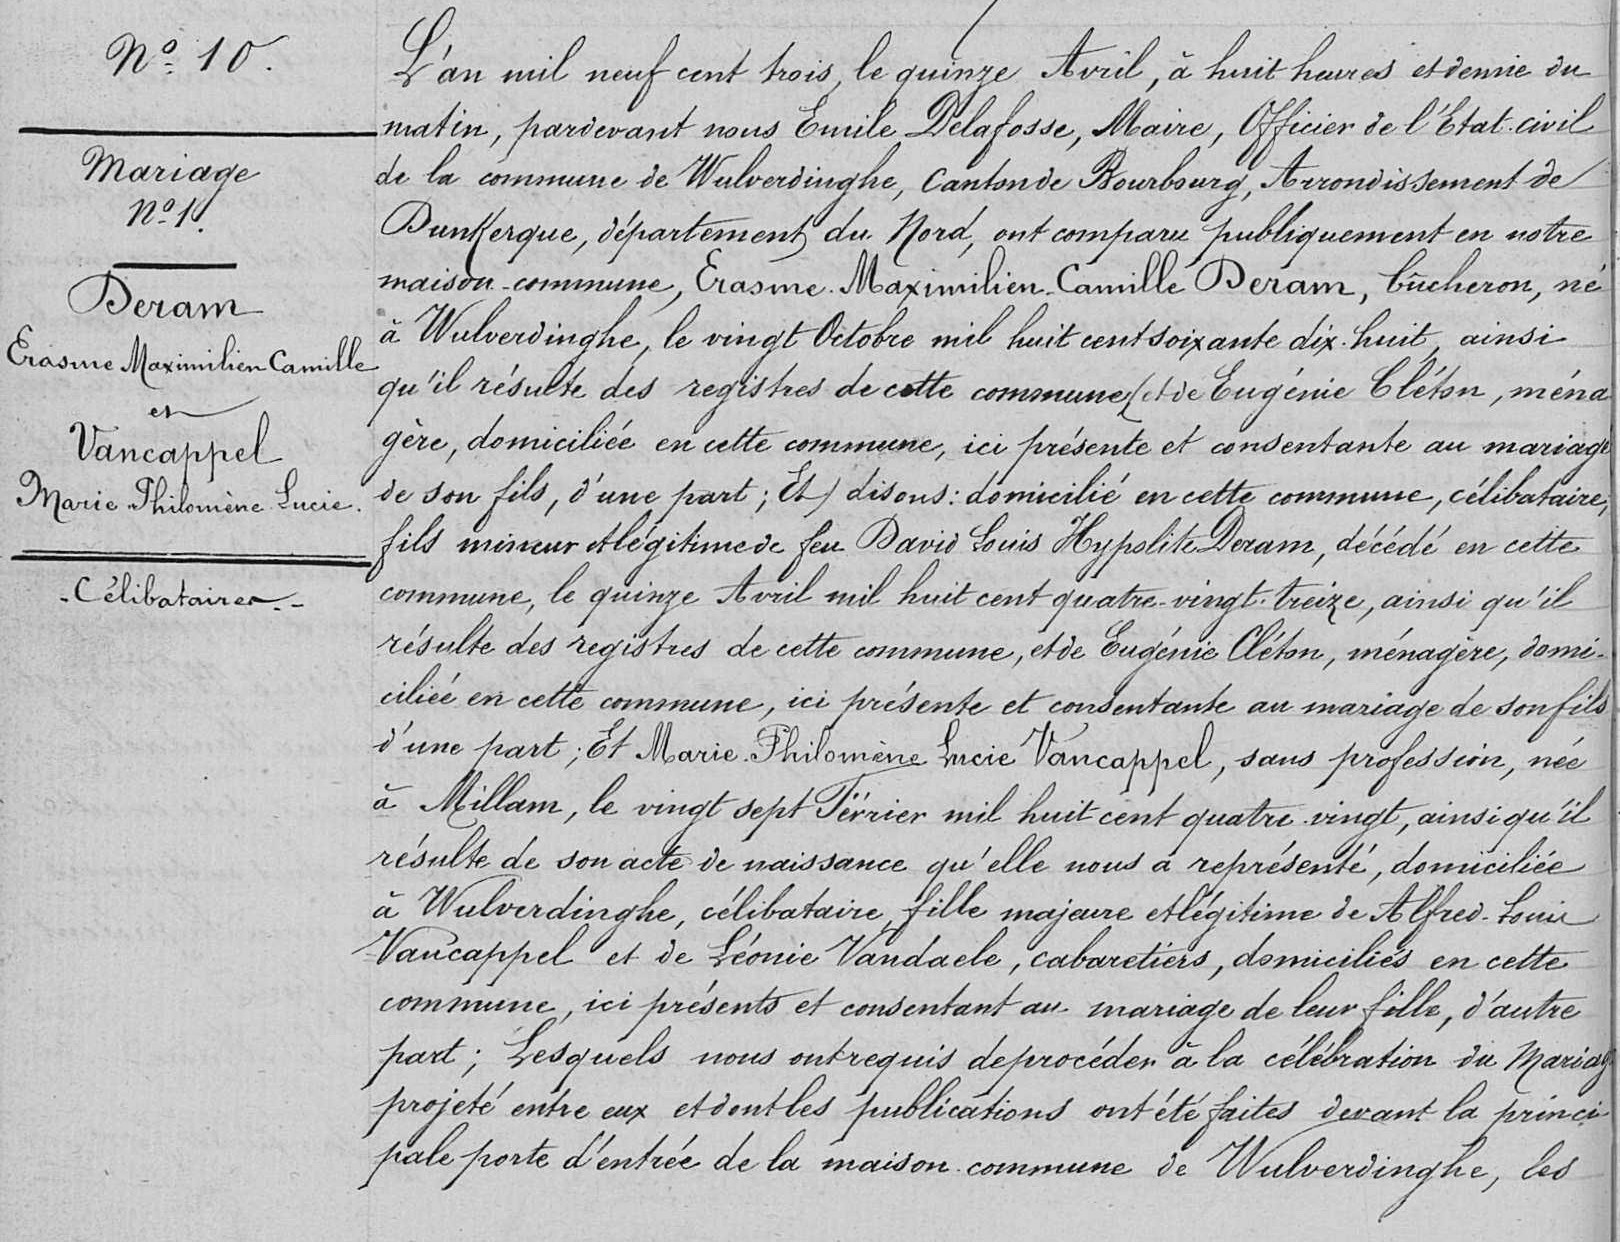 Nº 10.
Mariage
Nº 1.
Deram
Erasme Maximilien Camille
et
Vancappel
Marie Philomène Lucie.
Célibataires
L'an mil neuf cent trois, le quinze Avril, à huit heures et demie du
matin, pardevant nous Emile Delafosse, Maire, Officier de l'Etat-civil
de la commune de Wulverdinghe, Canton de Bourbourg, Arrondissement de
Dunkerque, département du Nord, ont comparu publiquement en notre
maison-commune, Erasme-Maximilien-Camille Deram, bûcheron, né
à Wulverdinghe, le vingt Octobre mil huit cent soixante dix-huit, ainsi
qu'il résulte des registres de cette commune (et de Eugénie Cléton, ména
gère, domiciliée en cette commune, ici présente et consentante au mariage
de son fils, d'une part; Et) disons: domicilié en cette commune, célibataire,
fils mineur et légitime de feu David Louis Hypolite Deram, décédé en cette
commune, le quinze Avril mil huit cent quatre-vingt-treize, ainsi qu'il
résulte des registres de cette commune, et de Eugénie Cléton, ménagère, domi-
ciliée en cette commune, ici présente et consentante au mariage de son fils
d'une part; Et Marie-Philomène Lucie Vancappel, sans profession, née
à Millam, le vingt sept Février mil huit cent quatre-vingt, ainsi qu'il
résulte de son acte de naissance qu'elle nous a représenté, domiciliée
à Wulverdinghe, célibataire, fille majeure et légitime de Alfred-Louis
Vancappel et de Léonie Vandaele, cabaretiers, domiciliés en cette
commune, ici présents et consentant au mariage de leur fille, d'autre
part; Lesquels nous ont requis de procéder à la célébration du Mariage
projeté entre eux et dont les publications ont été faites devant la princi
pale porte d'entrée de la maison commune de Wulverdinghe, les